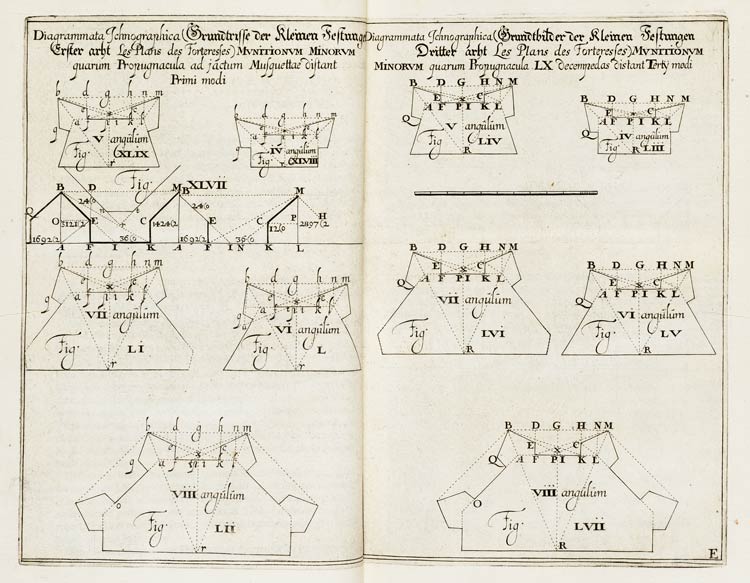 Diagrammata Ichnographica (Grundtrisse der Kleinen Festung
Erster arht Les Plans des Forteresses) MVNITIONVM MINORVM
quarum Propugnacula ad jactum Musquettae distant
Primi modi
b d g h n m
e x c
a f p i k l
g
V angúlum
Fig. XLIX
r
b d g h n m
e c
a f i k l
g
IV angúlum
Fig. XLVIII
r
Fig. XLVII
B D M B M
24(0 24(0
n t
Q O 5121(2 E r C 1424(2 E C P H
12(0 2897(2
1692(2 36(0 1692(2 36(0
A F I K A F I N K L
b d g h n m
e x c
a f i k l
g
VII angúlum
Fig. LI
r
b d g h n m
e x c
f i k l
g a
VI angúlum
Fig. L
r
b d g h n m
e x c
g a f i k l
VIII angúlum
o
Fig. LII
r
Diagrammata Ichnographica (Grundtbilder der Kleinen Festungen
Dritter arht Les Plans des Forteresses) MVNITIONVM
MINORVM quarum Propugnacula LX decempedas distant Terty modi
B D G H N M
E x C
A F P I K L
Q
V angúlum
Fig. LIV
R
B D G H N M
E x C
A F P I K L
Q
IV angúlum
Fig. LIII
R
B D G H N M
E x C
Q A F P I K L
VII angúlum
Fig. LVI
R
B D G H N M
E x C
A F P I K L
Q
VI angúlum
Fig. LV
R
B D G H N M
E x C
Q A F P I K L
VIII angúlum
O
Fig. LVII
R
E